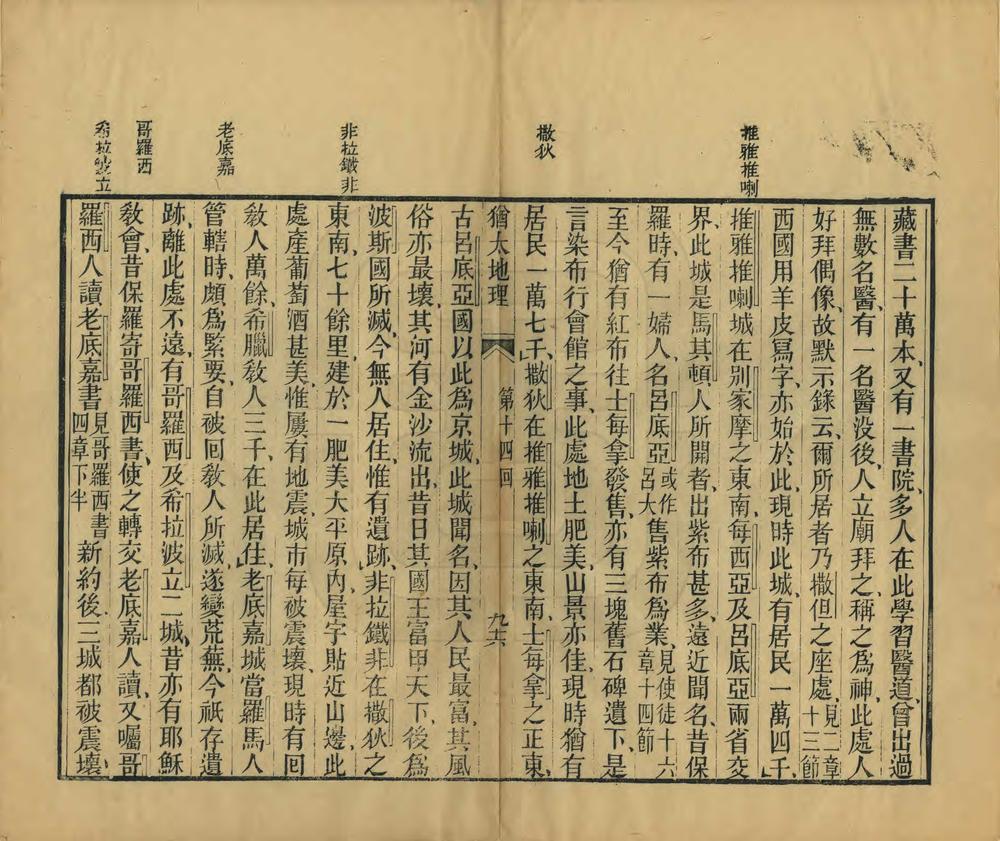 推雅推喇
撒狄
非拉鐵非
老底嘉
哥羅西
希拉波立
藏書二十萬本、又有一書院、多人在此學習醫道、曾出過
無數名醫、有一名醫沒後、人立廟拜之、稱之爲神、此處人
好拜偶像、故默示錄云、爾所居者乃撒但之座處、見二章十三節
西國用羊皮寫字、亦始於此、現時此城、有居民一萬四千、
推雅推喇城在別家摩之東南、每西亞及呂底亞兩省交
界、此城是馬其頓人所開者、出紫布甚多、遠近聞名、昔保
羅時、有一婦人、名呂底亞或作呂大售紫布爲業、見使徒十六章十四節
至今猶有紅布往士每拿發售、亦有三塊舊石碑遺下、是
言染布行會館之事、此處地土肥美、山景亦佳、現時猶有
居民一萬七千、撒狄在推雅推喇之東南、士每拿之正東、
猶太地理 第十四回 九十六
古呂底亞國以此爲京城、此城聞名、因其人民最富、其風
俗亦最壞、其河有金沙流出、昔日其國王富甲天下、後爲
波斯國所滅、今無人居住、惟有遺跡、非拉鐵非在撒狄之
東南、七十餘里、建於一肥美大平原內、屋宇貼近山邊、此
處產葡萄酒甚美、惟屢有地震、城市每被震壞、現時有回
敎人萬餘、希臘敎人三千、在此居住、老底嘉城當羅馬人
管轄時、頗爲緊要、自被回敎人所滅、遂變荒蕪、今祇存遺
跡、離此處不遠、有哥羅西及希拉波立二城、昔亦有耶穌
敎會、昔保羅寄哥羅西書、使之轉交老底嘉人讀、又囑哥
羅西人讀老底嘉書見哥羅西書四章下半新約後、三城都被震壞、